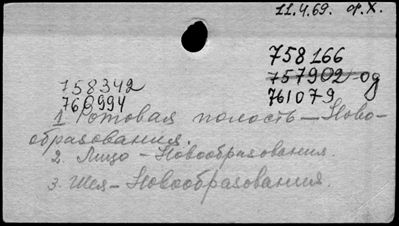 11.4.69. ф.Х.
758166
757902-од
758342
760994
761079
1. Ротовая полость - Ново-
образования.
2. Лицо - Новообразования.
3. Шея - Новообразования.